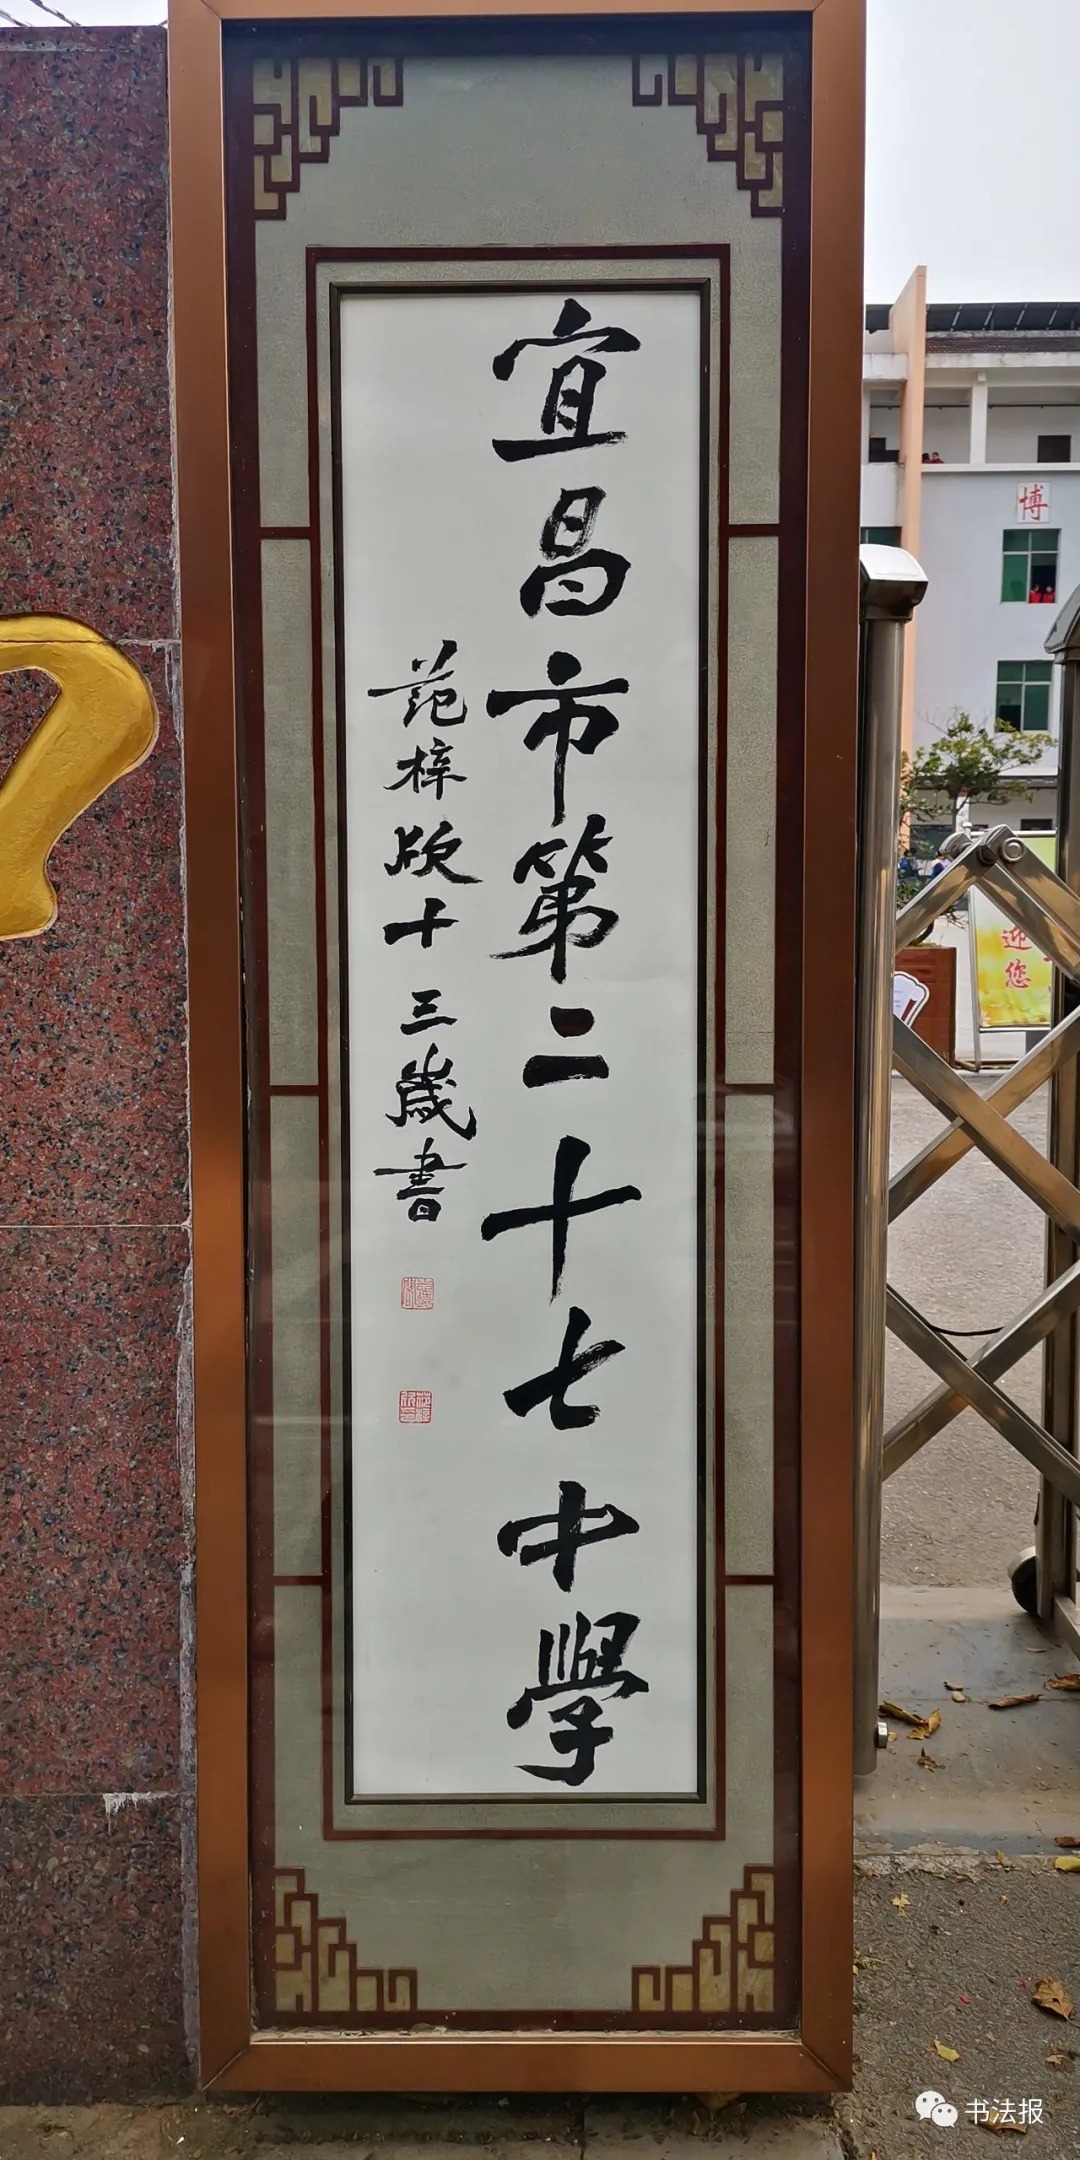 宜昌市第二十七中學
范梓版十三歲書
博
迎
您
书法报